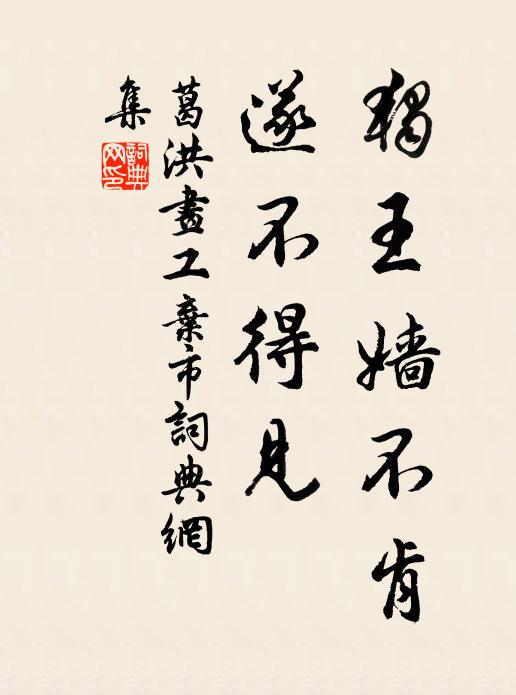 獨王嬙不肯
遂不得見
葛洪畫工棄市詞典網
集
詞典網印